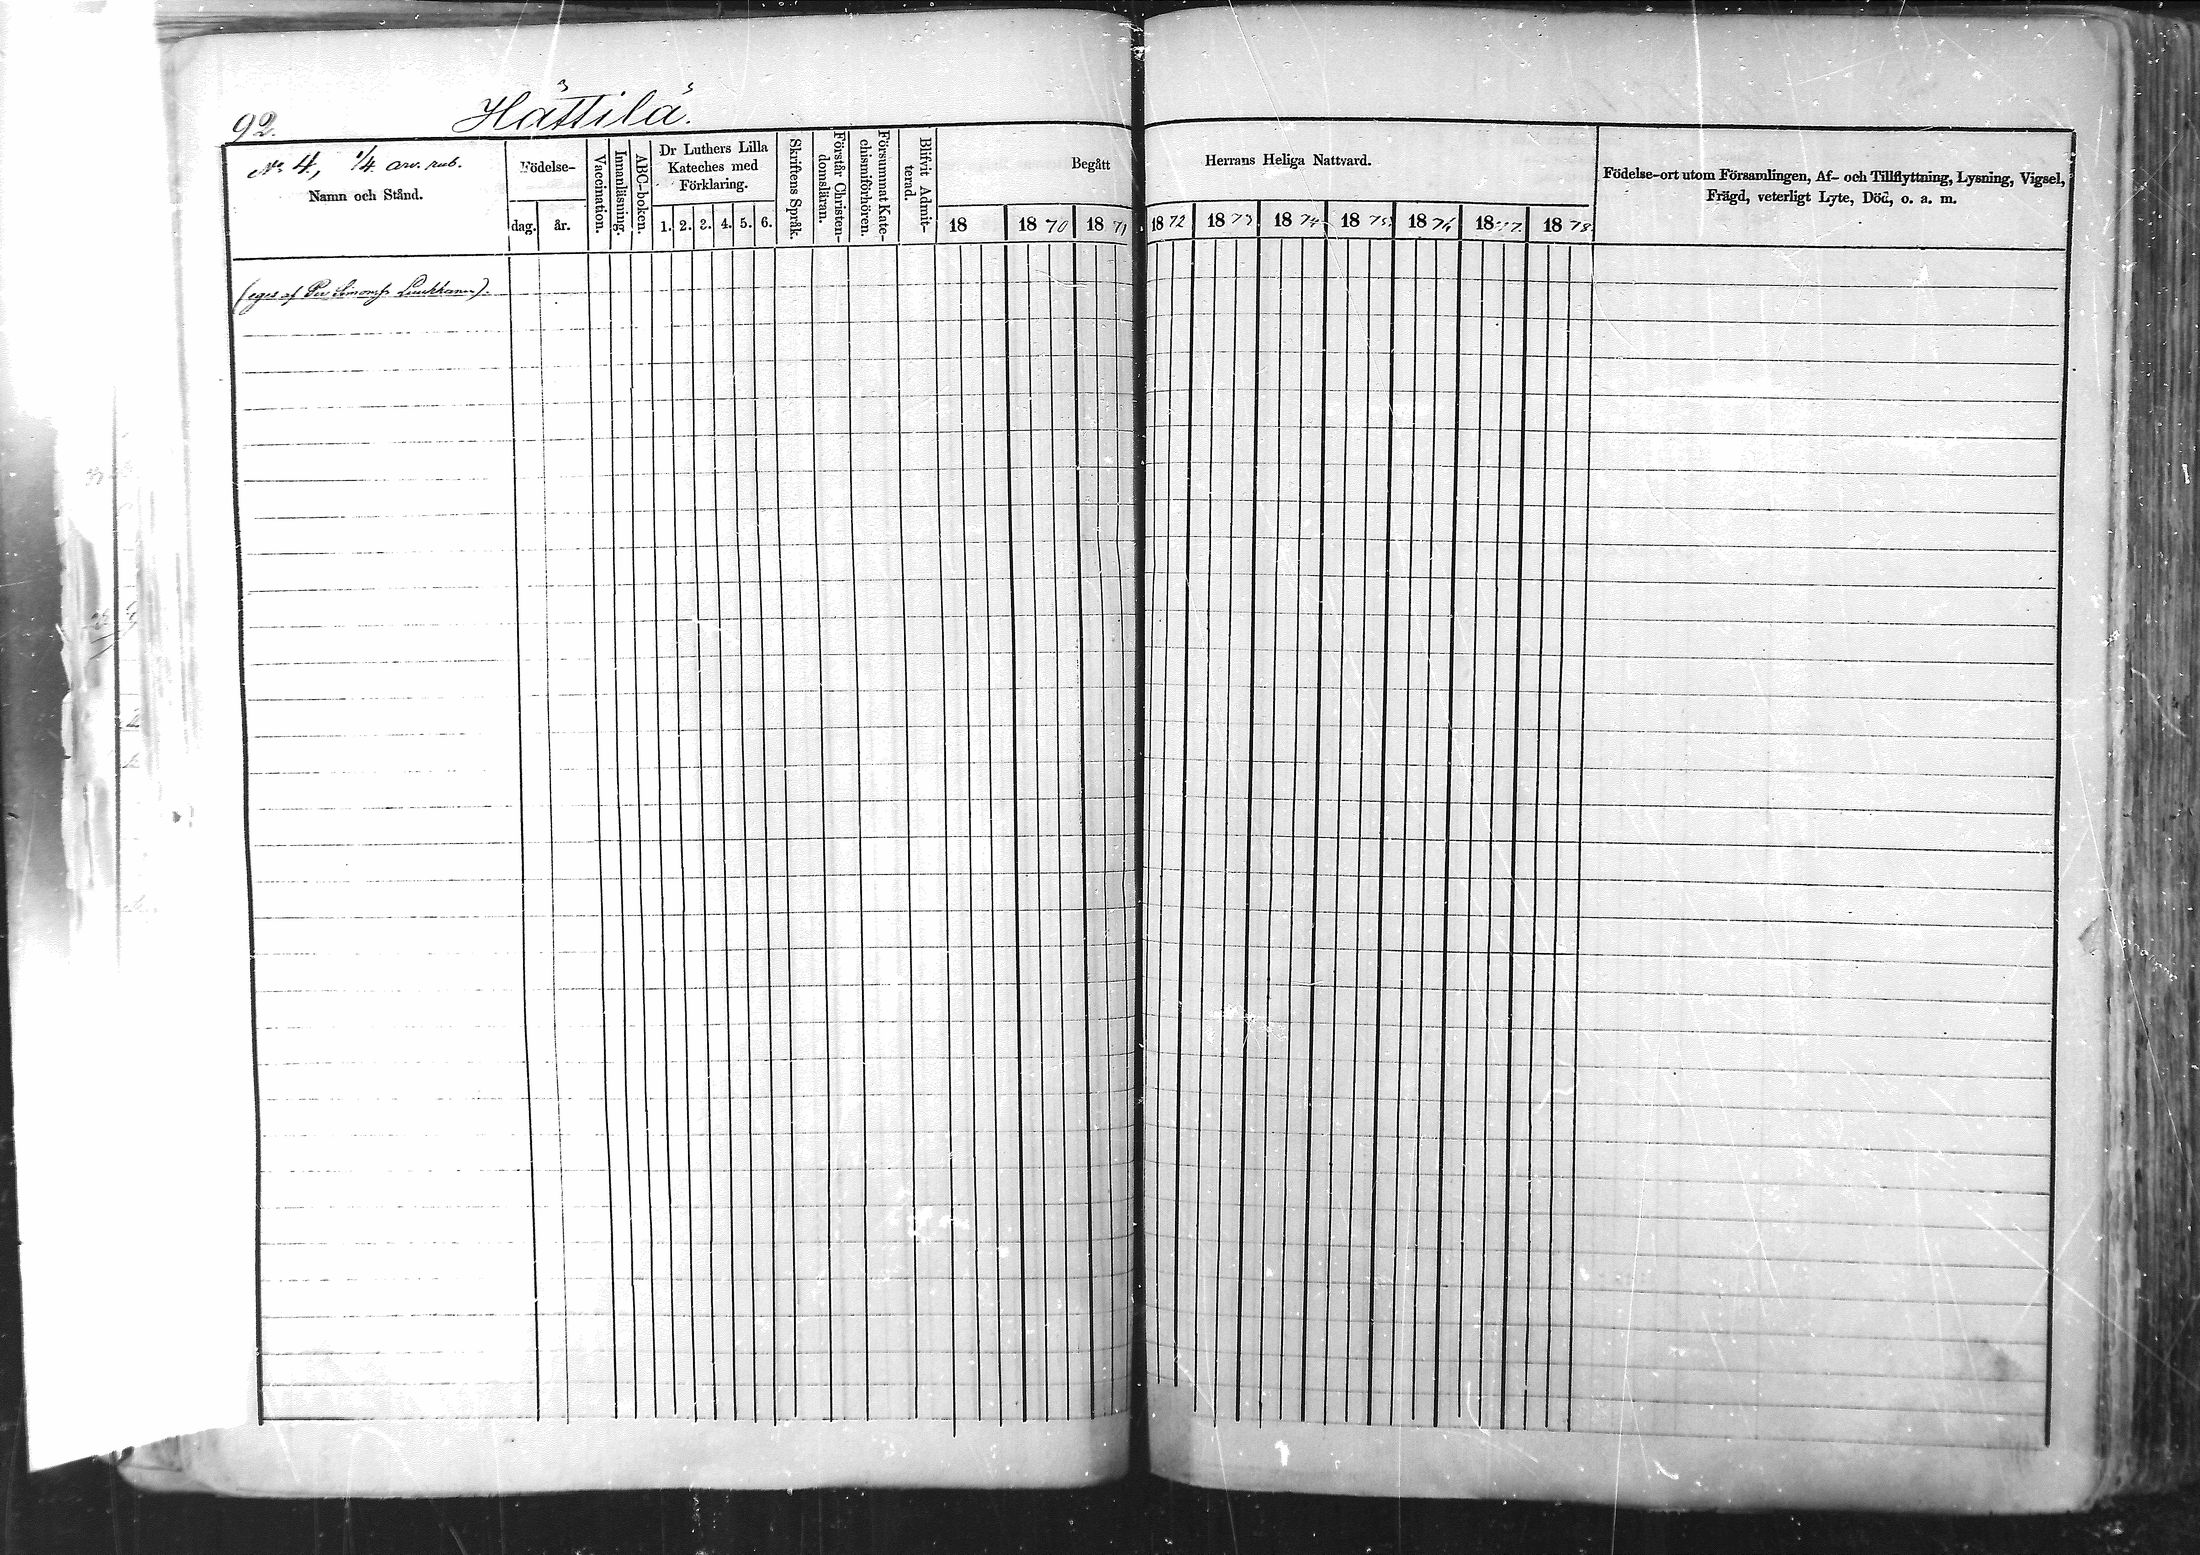 92.
Hättilä.
No 4, 1/4 arv. rub.
Namn och Stånd.
Födelse-
dag.
år.
Vaccination.
Innanläsning.
ABC-boken.
Dr Luthers Lilla
Kateches med
Förklaring.
1. 2. 3. 4. 5. 6.
Skriftens Språk.
Förstår Christen-
domsläran.
Försummat Kate-
chismiförhören.
Blifvit Admit-
terad.
Begått Herrans Heliga Nattvard.
18 1870 1871 1872 1873 1874 1875 1876 1877 1878
Födelse-ort utom Församlingen, Af- och Tillflyttning, Lysning, Vigsel,
Frägd, veterligt Lyte, Död, o. a. m.
(eges af Per Simonss.